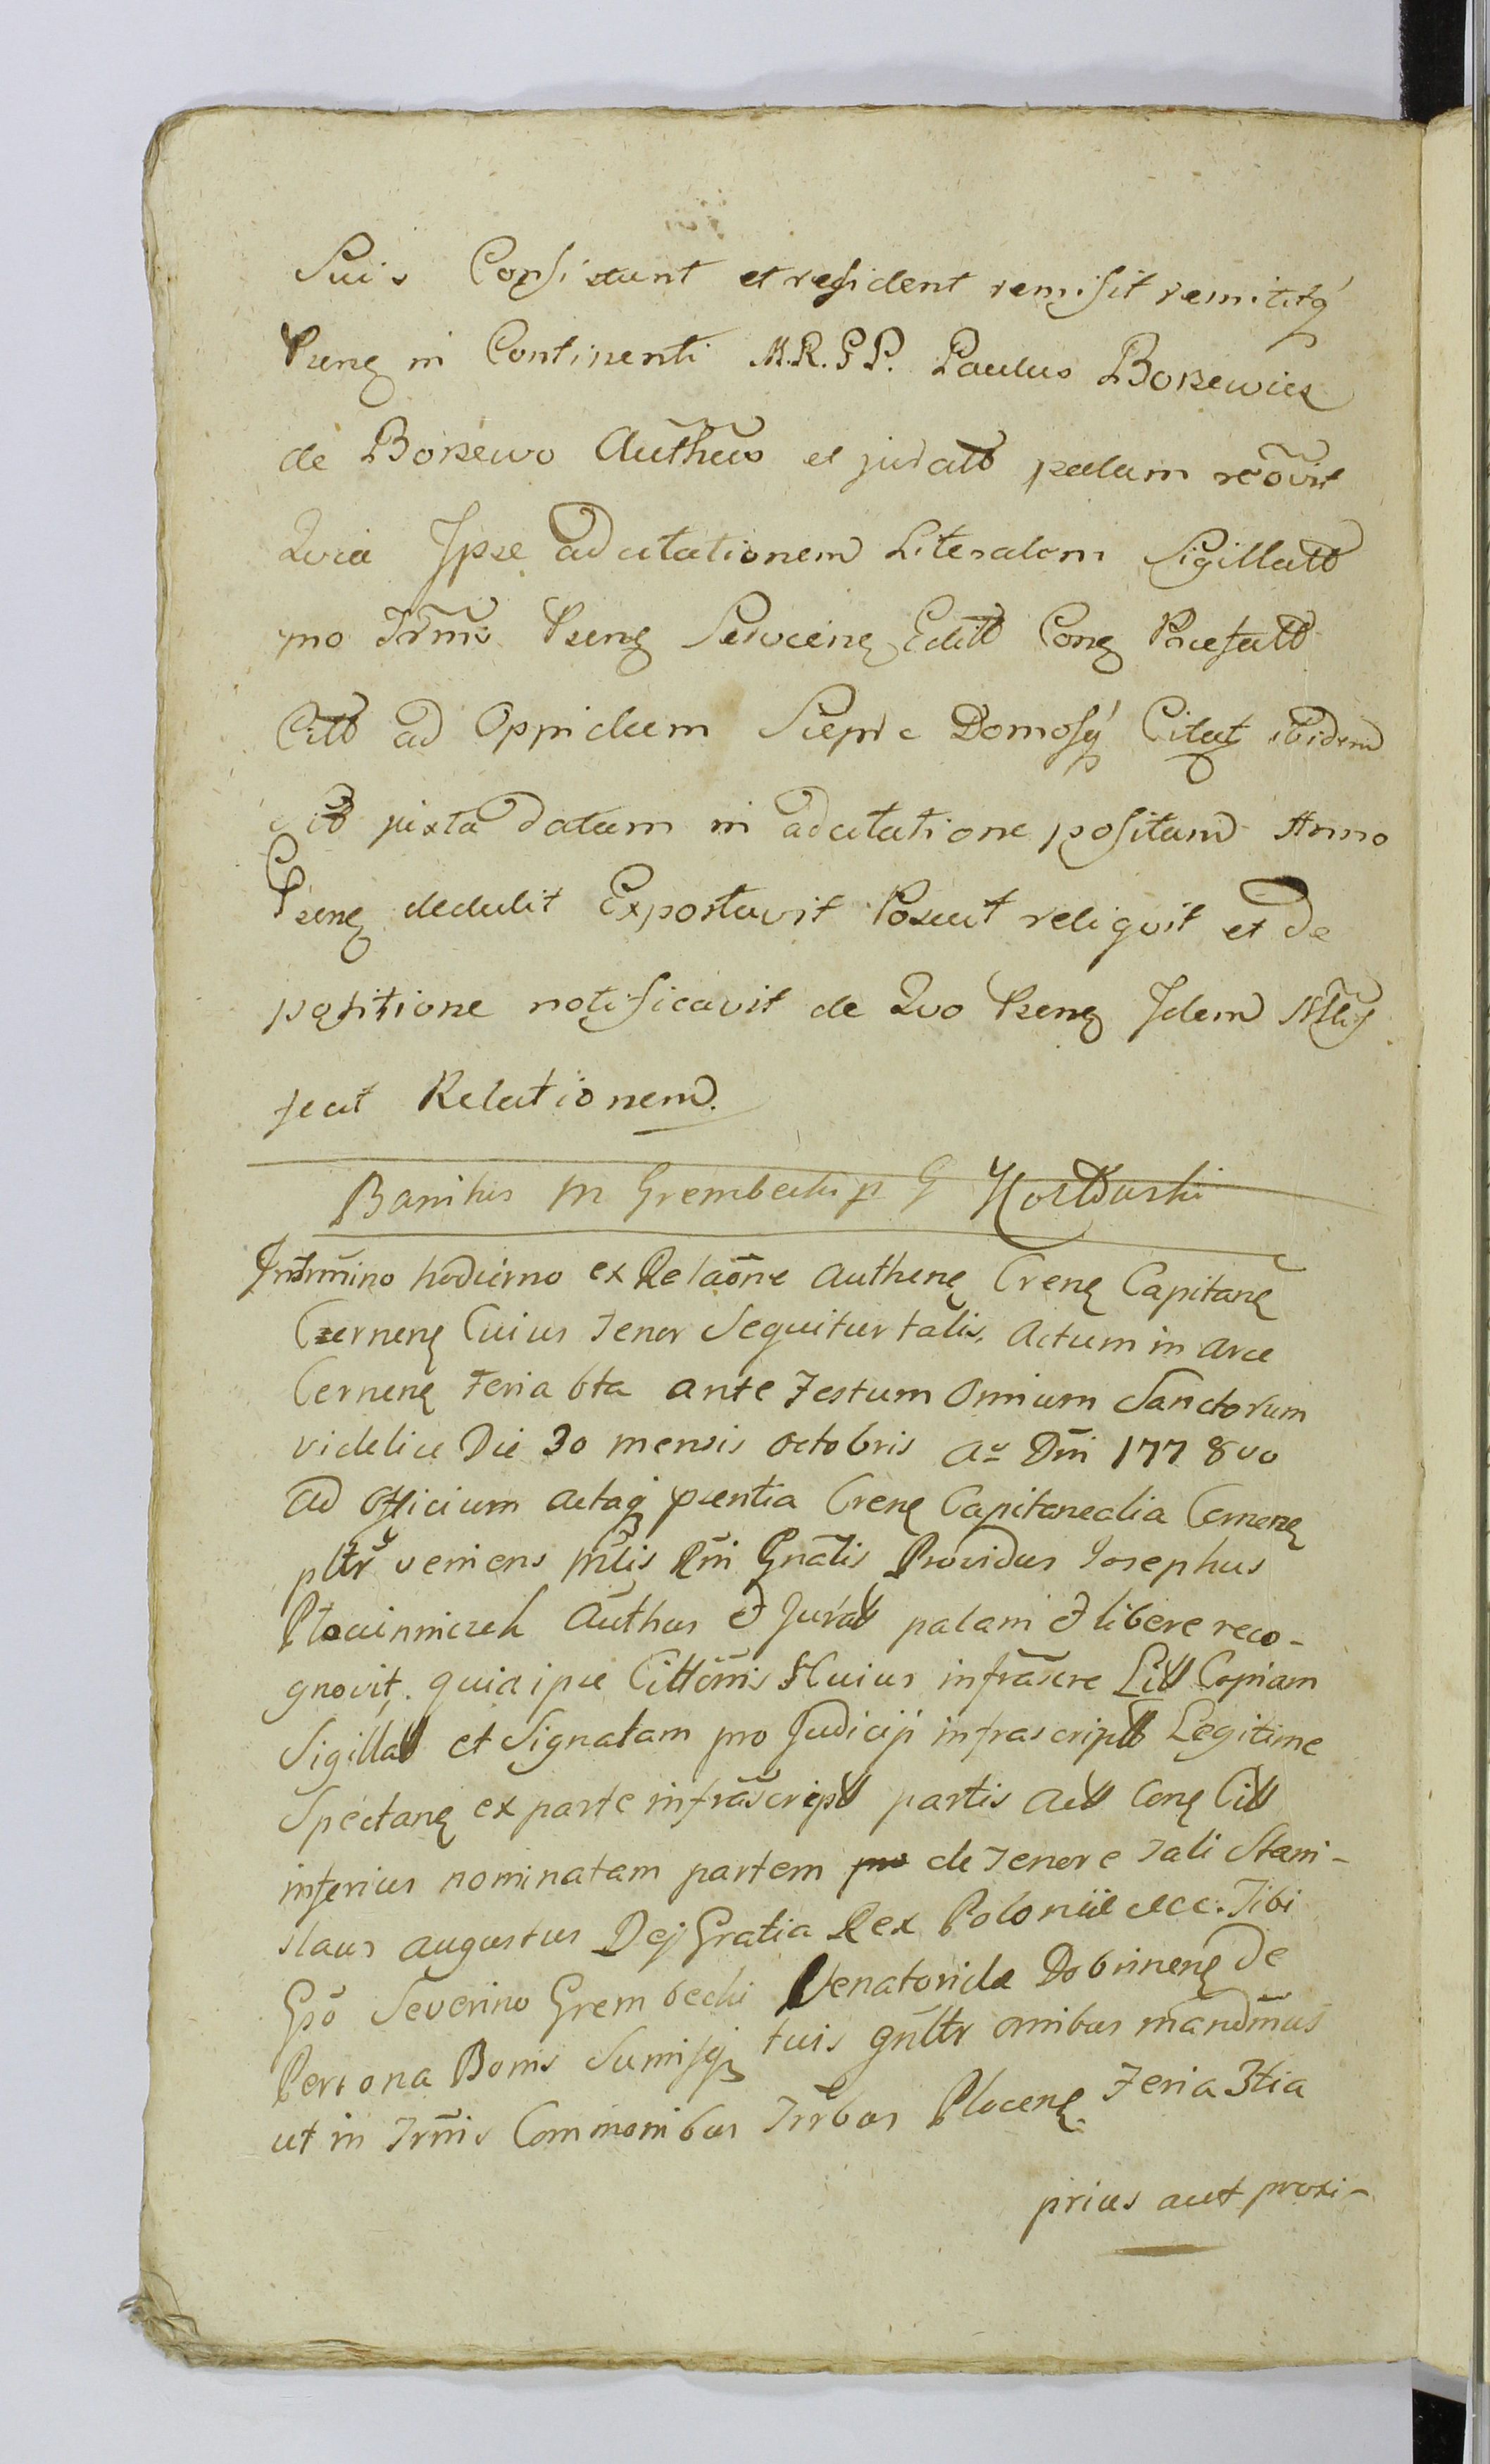 Suis Consistunt et resident remisit remititq́
Prenȩ in Continenti M.R.G P. Paulus Borzewicz
de Borzewo Authūs et juratt palam recōvit
Qvia Ipse adcitationem Literalem Sigillatt
pro Trm̄i Prenȩ Servienȩ Editt Conȩ Praefatt
Citt ad Oppidum Sierpc Domosq́ Citat ibidem
juxta datam in adcitatione positam Anno
Prenȩ dedulit Exportavit Posuit reliqvit et de
positione notificavit de Qvo Prenȩ Idem Mlis
fecit Relationem.
Banitus M Grembecki p G
Intrm̄ino hodierno ex Relaōne Authenȩ Crenȩ Capitanȩ
Czernenȩ Cuius Tenor Sequitur talis. Actum in Arce
Cernenȩ Feria 6ta ante Festum Omnium Sanctorum
videlice Die 30 mensis octobris Ao Dn̄i 1778vo
ad officium actaq prentia Crenȩ Capitanealia Cernenȩ
pltr̄ veniens Mlis Rn̄i Gnalis Providus Josephus
Authus et Juratt palam et libere reco-
gnovit. quia ipse Cittōnis Huius infrascre Litt Copiam
Sigillatt et Signatam pro Judicij infrascriptt Legitime
Spectanȩ ex parte infrascriptt partis Actt Conȩ Citt
inferius nominatam partem de Tenore Tali Stani-
slaus Augustus Dej Gratia Rex Poloniæ ecc. Tibi
Gsō Severino Grembecki Venatorida Dobrinenȩ de
Persona Bonis Sumisq tuis gnltr omnibus mandm̄us
ut in Trm̄is Communibus Trr̄bus Plocenȩ Feria 3tia
prius aut proxi-